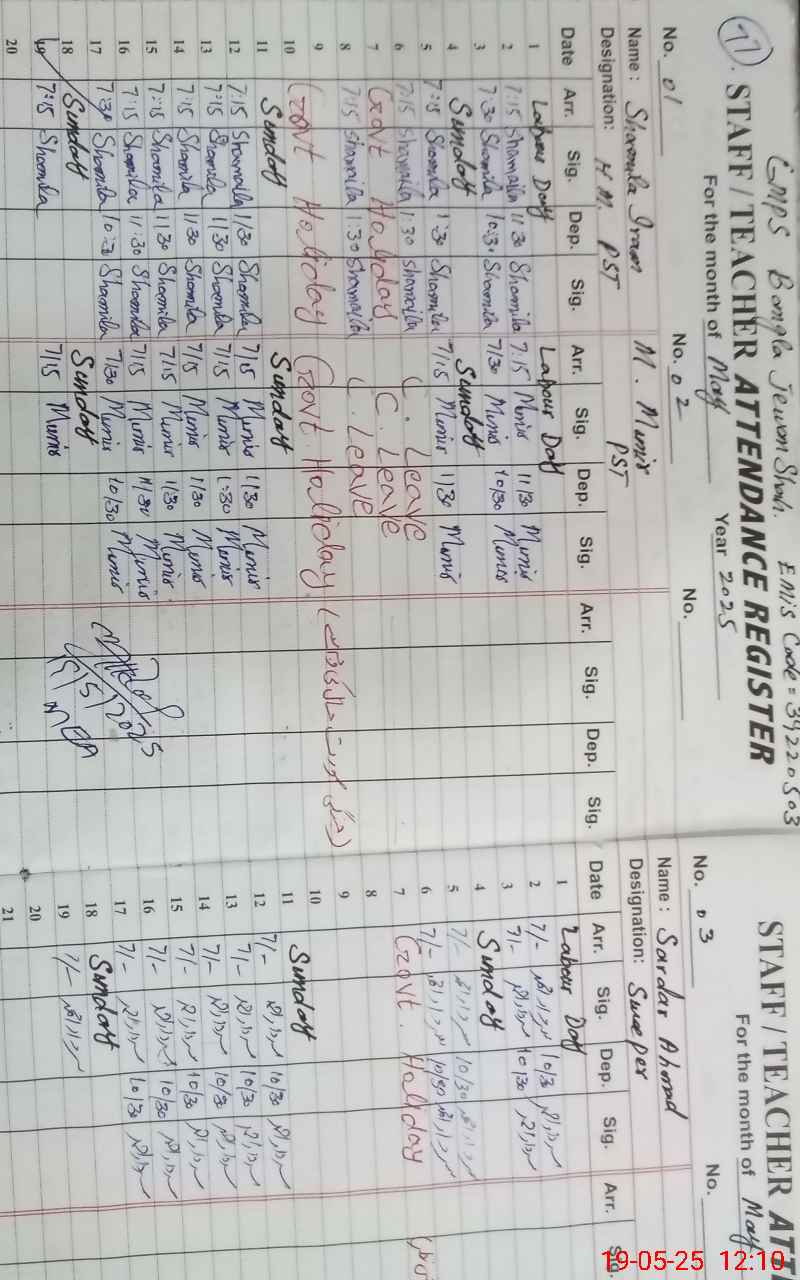 77
GMPS Bangla Jewan Shah.
EMIS Code = 39220503
STAFF / TEACHER ATTENDANCE REGISTER
For the month of May Year 2025
No. 01 No. 02 No.
Name: Shamila Iram M. Munir
Designation: H M. PST PST
Date Arr. Sig. Dep. Sig. Arr. Sig. Dep. Sig. Arr. Sig. Dep. Sig.
1 Labour Day Labour Day
2 7:15 Shamaila 11:30 Shamila 7:15 Munir 11/30 Munir
3 7:30 Shamila 10:30 Shamila 7/30 Munir 10/30 Munir
4 Sunday Sunday
5 7:15 Shamila 1:30 Shamila 7/15 Munir 11/30 Munir
6 7:15 Shamaila 1:30 Shamaila C. Leave
7 Govt Holiday C. Leave
8 7:15 Shamaila 1:30 Shamaila C. Leave
9 Govt Holiday Govt. Holiday
10
11 Sunday Sunday
12 7:15 Shamaila 11/30 Shamila 7/15 Munir 11/30 Munir
13 7:15 Shamila 11/30 Shamila 7/15 Munir 1:30 Munir
14 7:15 Shamila 11/30 Shamila 7/15 Munir 11/30 Munir
15 7:15 Shamila 11/30 Shamila 7/15 Munir 11/30 Munir
16 7:15 Shamila 11:30 Shamila 7/15 Munir 11/30 Munir
17 7:30 Shamila 10:30 Shamila 7/30 Munir 10/30 Munir
18 Sunday Sunday
19 7:15 Shamila 7/15 Munir
20
19/5/2025
STAFF / TEACHER ATT
For the month of May
No. 03 No.
Name: Sardar Ahmad
Designation: Sweeper
Date Arr. Sig. Dep. Sig. Arr. Sig.
1 Labour Day
2 7/- 10/30
3 7/- 10/30
4 Sunday
5 7/- 10/30
6 7/- 10/30
7 Govt. Holiday
8
9
10
11 Sunday
12 7/- 10/30
13 7/- 10/30
14 7/- 10/30
15 7/- 10/30
16 7/- 10/30
17 7/- 10/30
18 Sunday
19 7/-
20
21
19-05-25 12:10